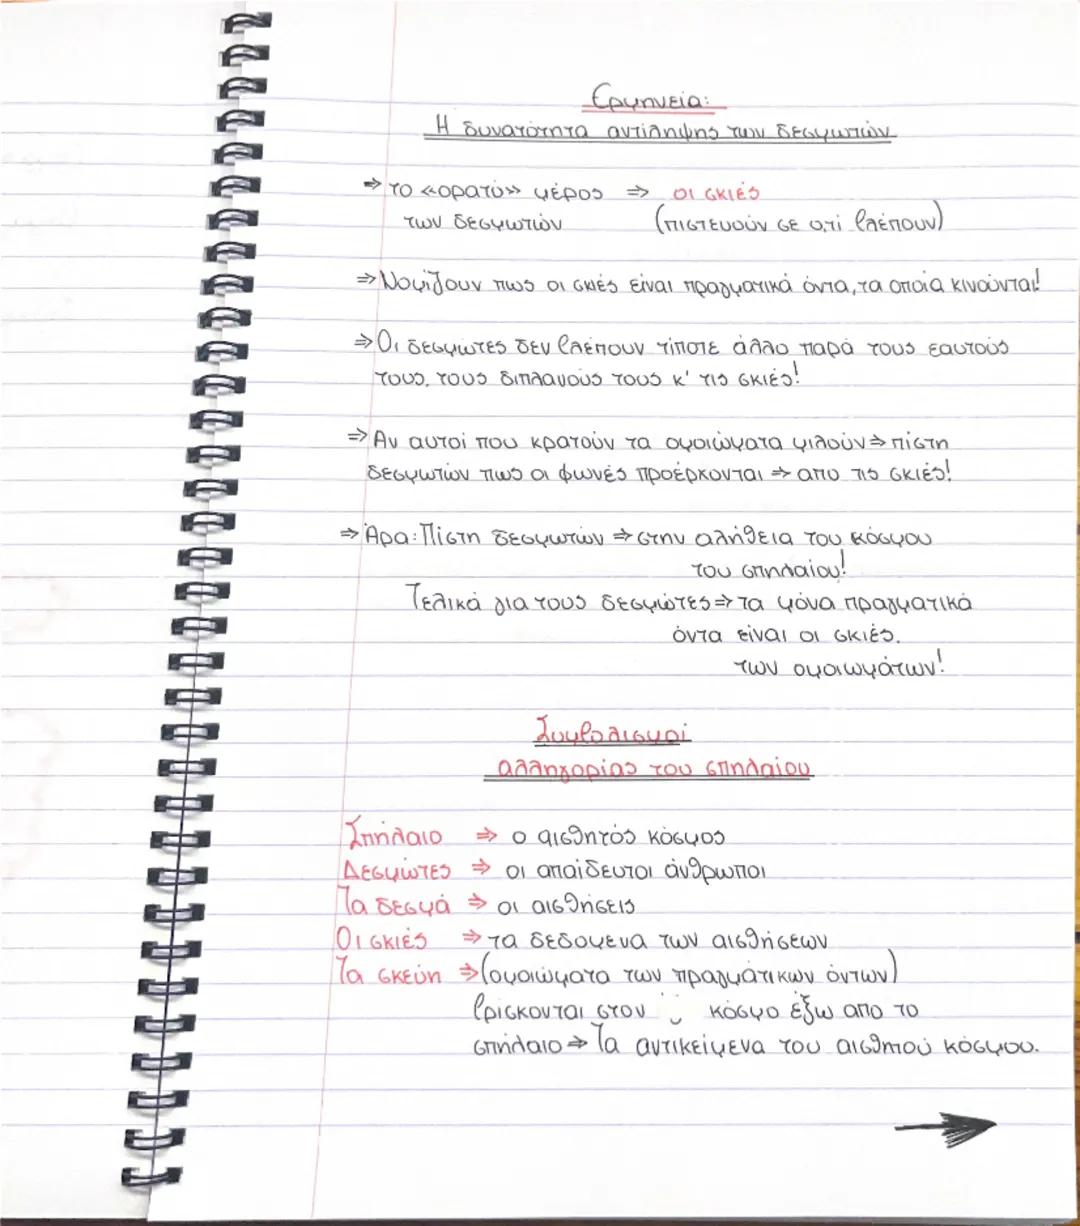 Ερμηνεία:
Η δυνατότητα αντίληψης των δεσμωτών
⇒ το «ορατό» μέρος ⇒ οι σκιές
των δεσμωτών (πιστεύουν σε ό,τι βλέπουν)
⇒ Νομίζουν πως οι σκιές είναι πραγματικά όντα, τα οποία κινούνται!
⇒ Οι δεσμώτες δεν βλέπουν τίποτε άλλο παρά τους εαυτούς
τους, τους διπλανούς τους κ' τις σκιές!
⇒ Αν αυτοί που κρατούν τα ομοιώματα μιλούν ⇒ πίστη
δεσμωτών πως οι φωνές προέρχονται ⇒ απο τις σκιές!
⇒ Άρα: Πίστη δεσμωτών ⇒ στην αλήθεια του κόσμου
του σπηλαίου!
Τελικά για τους δεσμώτες ⇒ τα μόνα πραγματικά
όντα είναι οι σκιές.
των ομοιωμάτων!
Συμβολισμοί
αλληγορίας του σπηλαίου
Σπήλαιο ⇒ ο αισθητός κόσμος
Δεσμώτες ⇒ οι απαίδευτοι άνθρωποι
Τα δεσμά ⇒ οι αισθήσεις
Οι σκιές ⇒ τα δεδομενα των αισθήσεων
Τα σκεύη ⇒ (ομοιώματα των πραγμάτικων όντων)
βρίσκονται στον κόσμο έξω απο το
σπήλαιο ⇒ Τα αντικείμενα του αισθητού κόσμου.